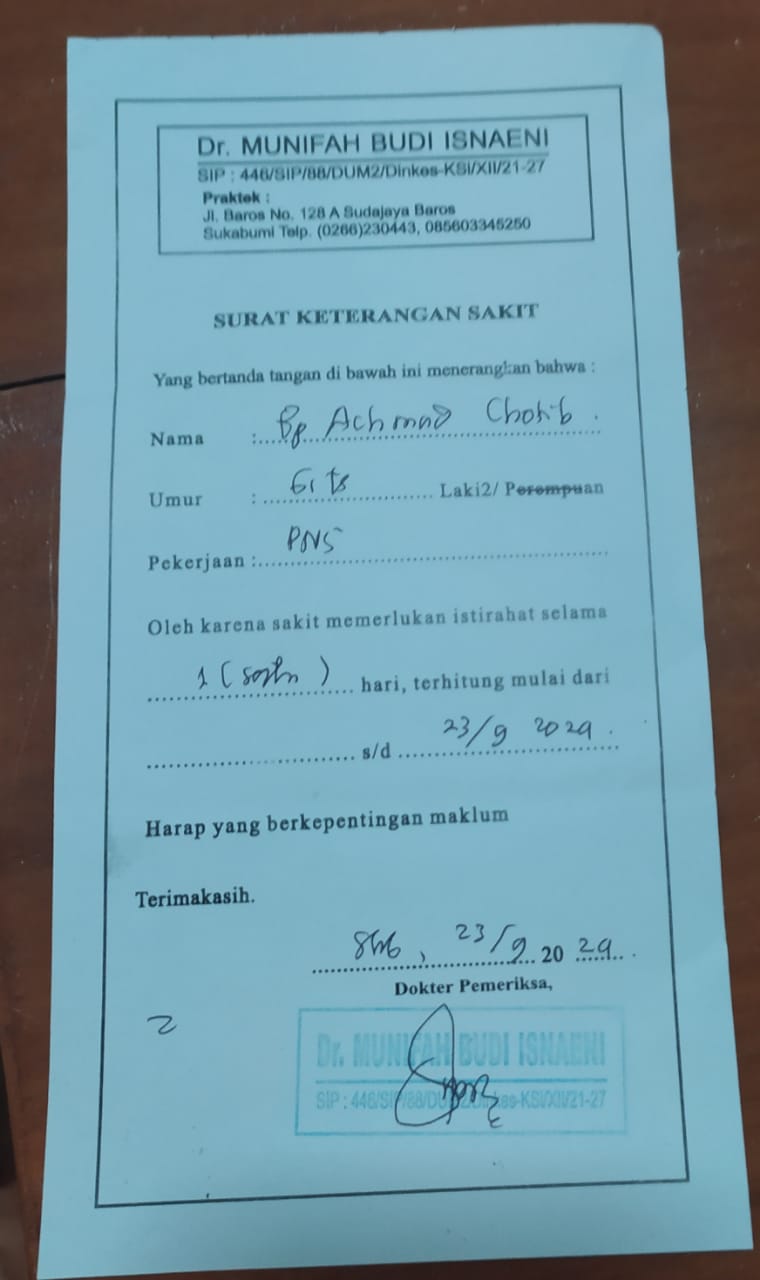 Dr. MUNIFAH BUDI ISNAENI
SIP : 446/SIP/88/DUM2/Dinkes-KSI/XII/21-27
Praktek :
Jl. Baros No. 128 A Sudajaya Baros
Sukabumi Telp. (0266)230443, 085603345250
SURAT KETERANGAN SAKIT
Yang bertanda tangan di bawah ini menerangkan bahwa :
Nama : Bp Achmad Chotib .
Umur : Laki2/ Perempuan
Pekerjaan : PNS
Oleh karena sakit memerlukan istirahat selama
1 ( ) hari, terhitung mulai dari
s/d 23/9 2024 .
Harap yang berkepentingan maklum
Terimakasih.
23/9 20 24
Dokter Pemeriksa,
Dr. MUNIFAH BUDI ISNAENI
SIP : 446/SIP/88/DUM2/Dinkes-KSI/XII/21-27